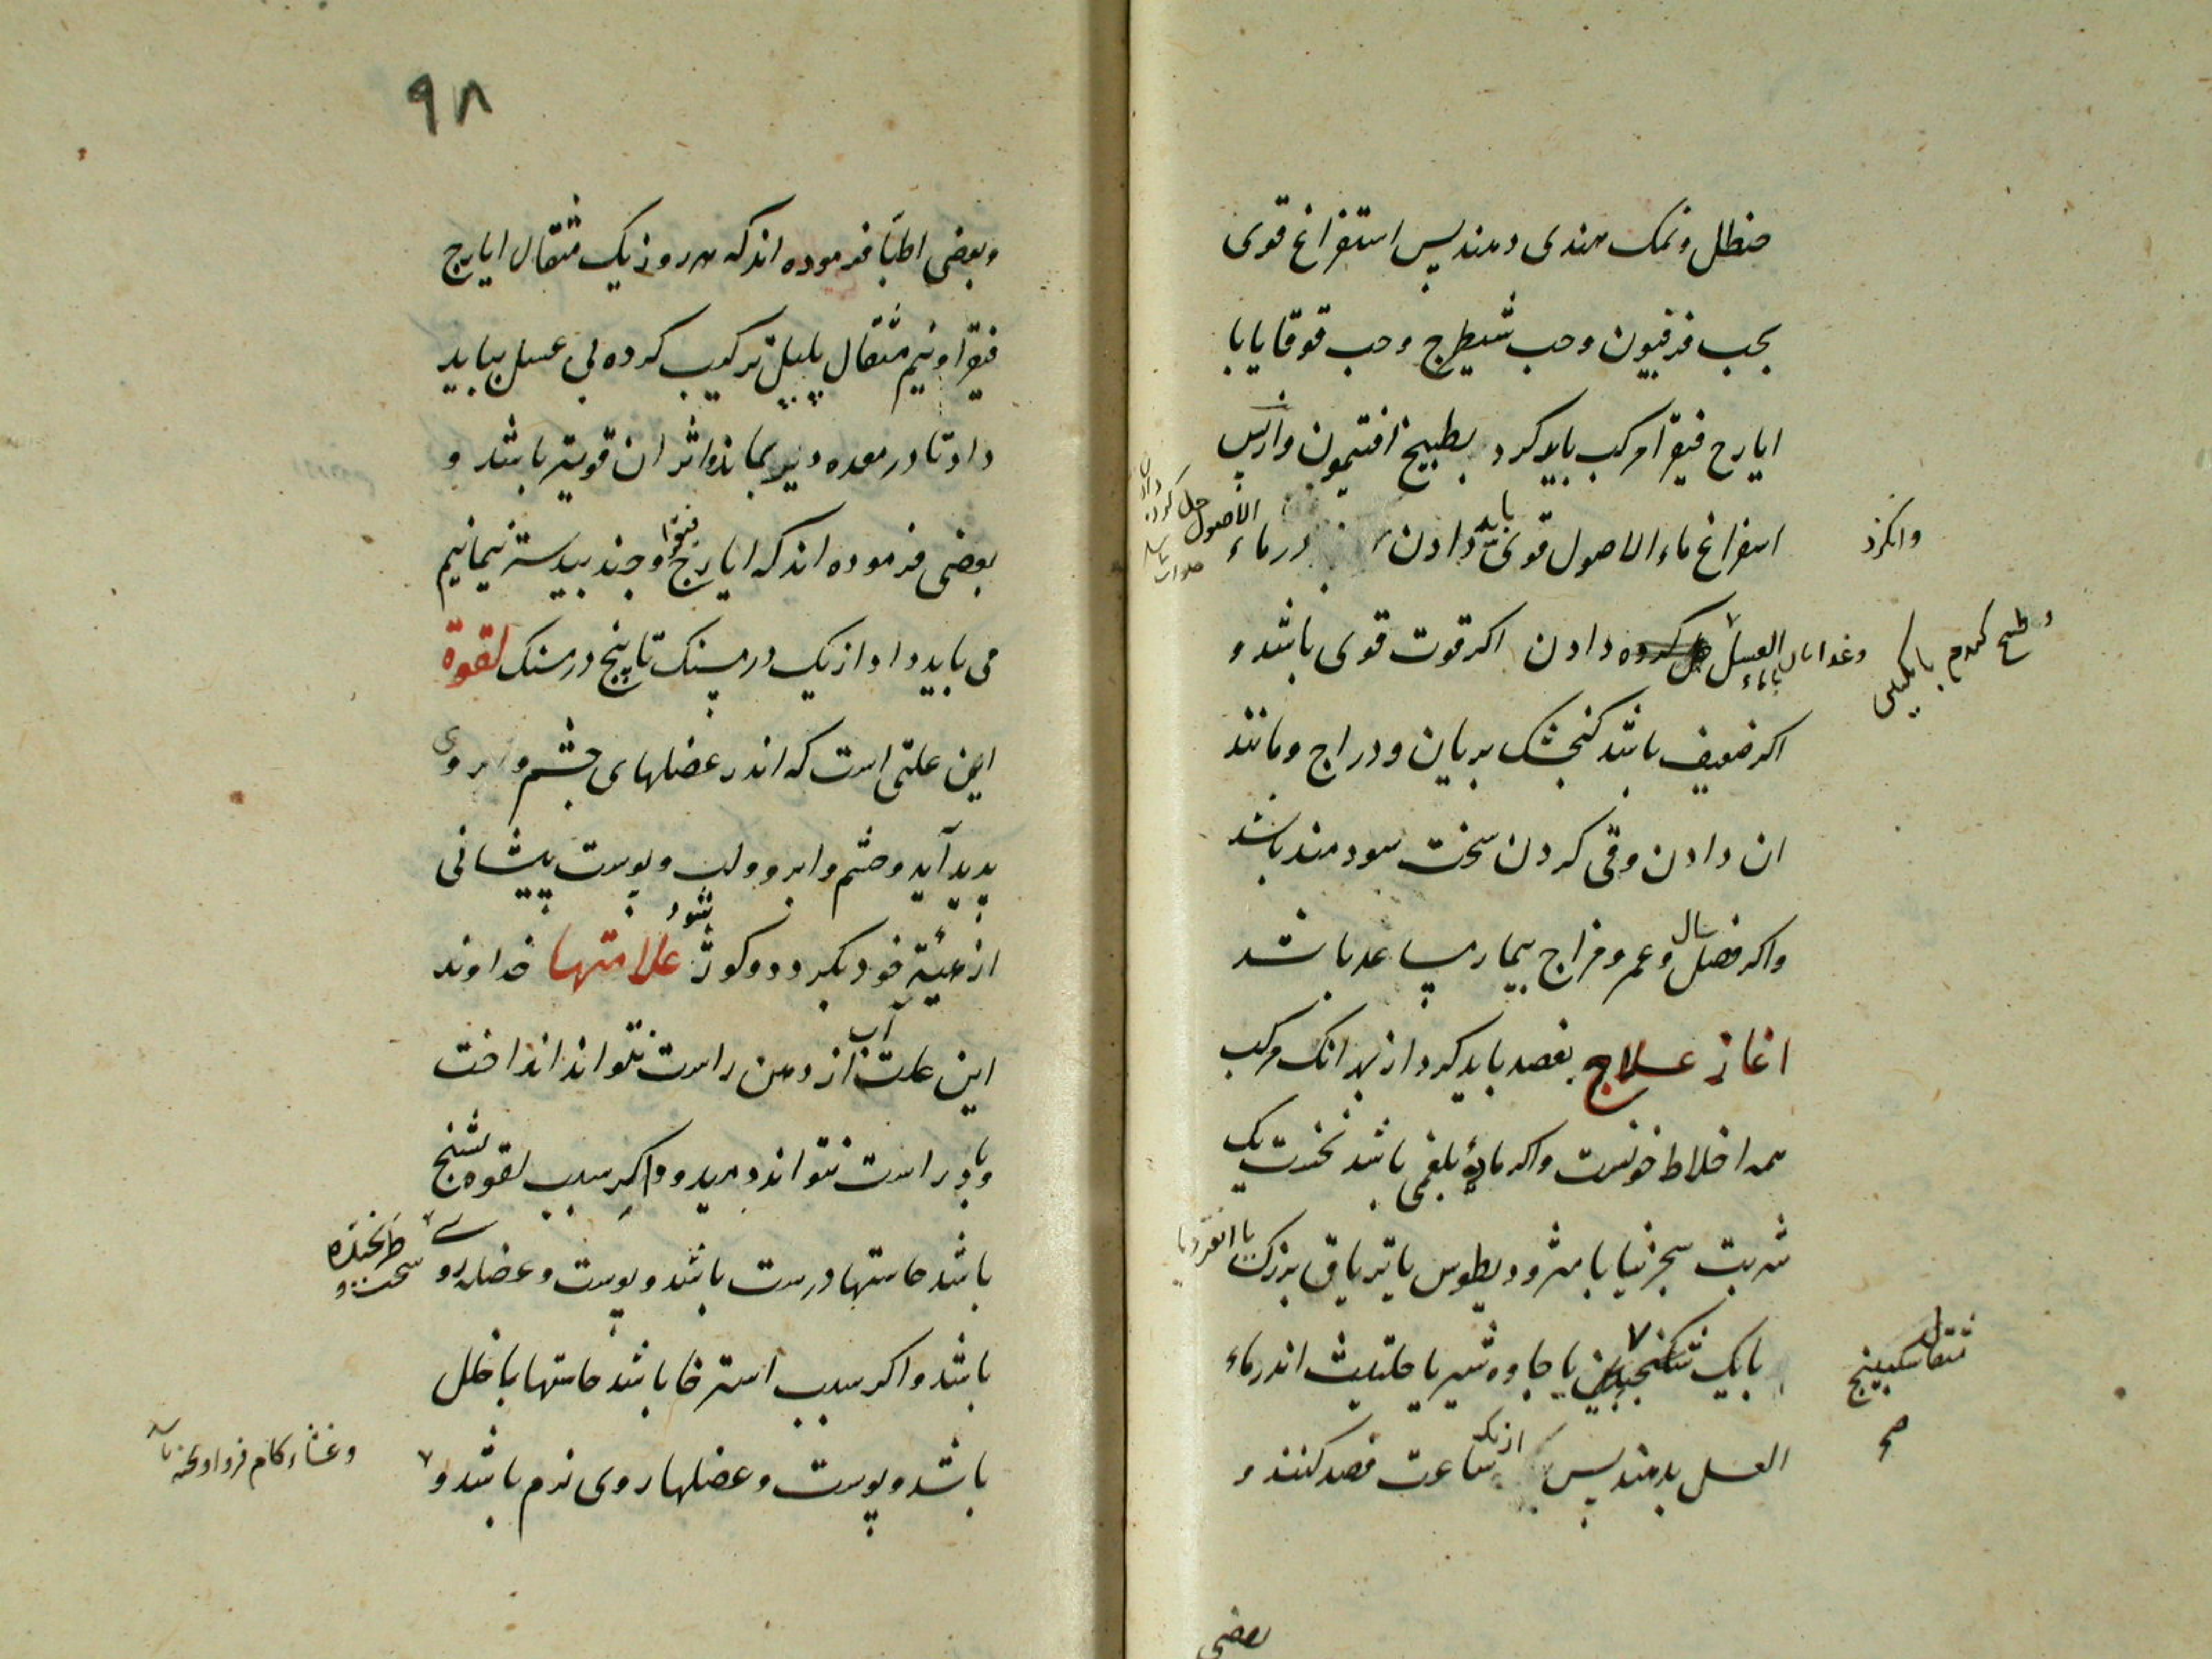 حنظل و نمک هندی دهند پس استفراغ قوی
بحب فرفیون و حب شیطرج و حب قوقایا با
ایارج فیقرا مرکب باید کرد بطبیخ افتیمون و از پس
استفراغ ماء الاصول قوی باید دادن در ماء الاصول حل کردن
العسل کرده دادن اکر قوت قوی باشد و
اکر ضعیف باشد کنجشک بریان و دراج و مانند
ان دادن و قی کردن سخت سودمند باشد
و اکر فصل سال و عمر و مزاج بیمار مساعد باشد
اغاز علاج بفصد باید کرد از بهر انک مرکب
همه اخلاط خونست و اکر مادۀ بلغمی باشد نخست یک
شربت سجزنیا یا مثرودیطوس یا تریاق بزرک یا انقردیا
با یک یا جاوه شیر یا حلتیت اندر ماء
العسل بدهند پس از یک ساعت فصد کنند و
مثقال سکبینج
صح
بعضی
۹۸
و بعضی اطبا فرموده اند که هر روز یک مثقال ایارج
فیقرا و نیم مثقال پلپل ترکیب کرده بی عسل بباید
داد تا در معده دیر بماند و اثر ان قویتر باشد و
بعضی فرموده اند که ایارج فیقرا و جند بیدستر نیمانیم
می باید داد از یک درمسنک تا پنج درمسنک لقوة
این علتی است که اندر عضلهای چشم و ابروی
پدید آید و چشم و ابرو و لب و پوست پیشانی
از هیئة خود بکردد و کوژ شود علامتها خداوند
این علت آب از دهن راست نتواند انداخت
و باد راست نتواند دمید و اکر سبب لقوه تشنج
باشد حاستها درست باشد و پوست و عضله روی سخت و ترنجیده
باشد و اکر سبب استرخا باشد حاستها با خلل
باشد و پوست و عضلها روی نرم باشد و
و غشاء کام فرو اویخته باشد